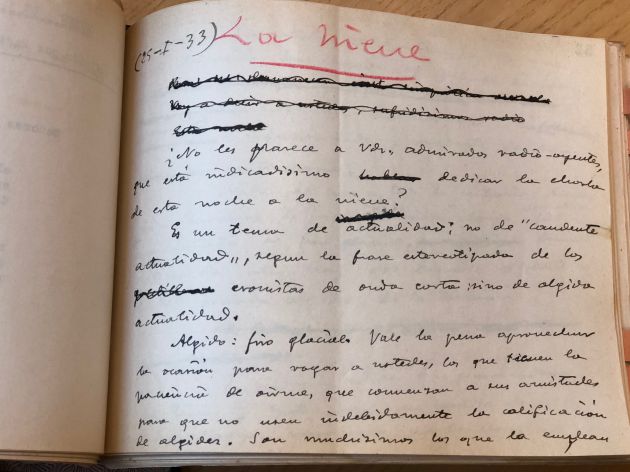 (25-I-33) La nieve
Voy a decir a ustedes, radio
Esta noche
¿No les parece a Vds., admirados radio-oyentes,
que está indicadísimo dedicar la charla
de esta noche a la nieve?
Es un tema de actualidad; no de "candente
actualidad", según la frase estereotipada de los
cronistas de onda corta: sino de algida
actualidad.
Algido: frío glacial. Vale la pena aprovechar
la ocasión para rogar a ustedes, los que tienen la
paciencia de oirme, que convenzan a sus amistades
para que no usen indebidamente la calificación
de algidez. Son muchísimos los que la emplean